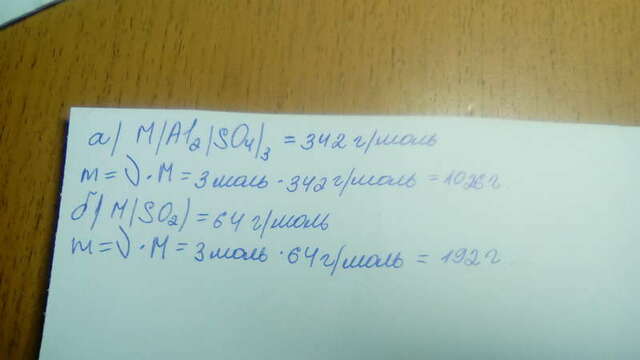 а) M(Al₂(SO₄)₃ = 342 г/моль
m = ν · M = 3 моль · 342 г/моль = 1026 г
б) M(SO₂) = 64 г/моль
m = ν · M = 3 моль · 64 г/моль = 192 г